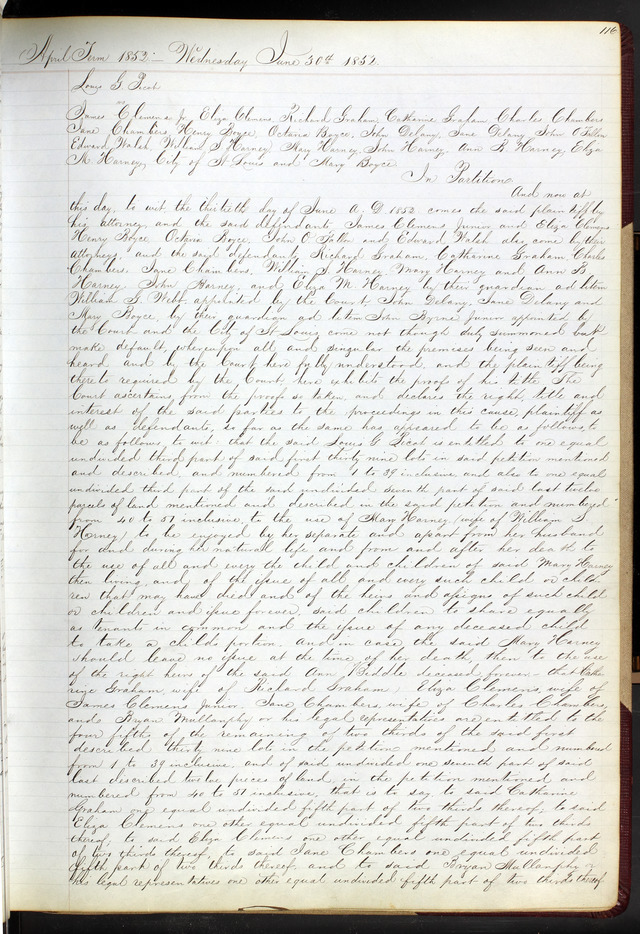 116
April Term 1852 - Wednesday June 30th 1852
Louis G. Picot
vs
James Clemens Jr Eliza Clemens, Richard Graham, Catharine Graham Charles Chambers
Jane Chambers, Henry Boyce, Octavia Boyce, John Delany, Jane Delany John O'Fallon
Edward Walsh, William S Harney Mary Harney John Harney, Ann B. Harney, Eliza
M. Harney, City of St Louis and Mary Boyce
In Partition
And now at
this day, to wit, the thirtieth day of June A, D 1852, comes the said plaintiff by
his attorney, and the said defendants James Clemens Junior, and Eliza Clemens
Henry Boyce, Octavia Boyce, John O Fallon and Edward Walsh also come by their
attorneys, and the said defendants Richard Graham, Catharine Graham, Charles
Chambers, Jane Chambers, William S Harney Mary Harney and Ann B.
Harney, John Harney, and Eliza M. Harney by their guardian ad litem
William G. Webb, appointed by the Court, John Delany, Jane Delany and
Mary Boyce, by their guardian ad litem John Byrne Junior appointed by
the Court and the City of St Louis come not though duly summoned but
make default, whereupon all and singular the premises being seen and
heard and by the Court here fully understood, and the plaintiff being
thereto required by the Court, here exhibits the proofs of his title The
Court ascertains from the proofs so taken, and declares the right, title and
interest of the said parties to the proceedings in this cause, plaintiff as
well as defendants, so far as the same has appeared to be as follows, to
be as follows, to wit: that the said Louis G Picot is entitled to one equal
undivided third part of said first thirty nine lots in said petition mentioned
and described, and numbered from 1 to 39 inclusive, and also to one equal
undivided third part of the said undivided seventh part of said last twelve
parcels of land mentioned and described in the said petition and numbered
from 40 to 51 inclusive, to the use of Mary Harney (wife of William S
Harney) to be enjoyed by her separate and apart from her husband
for and during her natural life and from and after her death to
the use of all and every the child and children of said Mary Harney
then living, and of the issue of all and every such child or child-
ren that may have died and of the heirs and assigns of such child
or children and issue forever, said children to share equally
as tenants in common and the issue of any deceased child
to take a childs portion. And in case the said Mary Harney
should leave no issue at the time of her death, then to the use
of the right heirs of the said Ann Biddle deceased forever - that Catha
rine Graham, wife of Richard Graham, Eliza Clemens, wife of
James Clemens Junior, Jane Chambers, wife of Charles Chambers,
and Bryan Mullanphy or his legal representatives are entitled to the
four fifths of the remaining of two thirds of the said first
described thirty nine lots in the petition mentioned and numbered
from 1 to 39 inclusive, and of said undivided one seventh part of said
last described twelve pieces of land, in the petition mentioned and
numbered from 40 to 51 inclusive, that is to say, to said Catharine
Graham one equal undivided fifth part of two thirds thereof, to said
Eliza Clemens one other equal undivided fifth part of two thirds
thereof, to said Eliza Clemens one other equal undivided fifth part
of two thirds thereof, to said Jane Chambers one equal undivided
fifth part of two thirds thereof and to said Bryan Mullanphy or
his legal representatives one other equal undivided fifth part of two thirds thereof